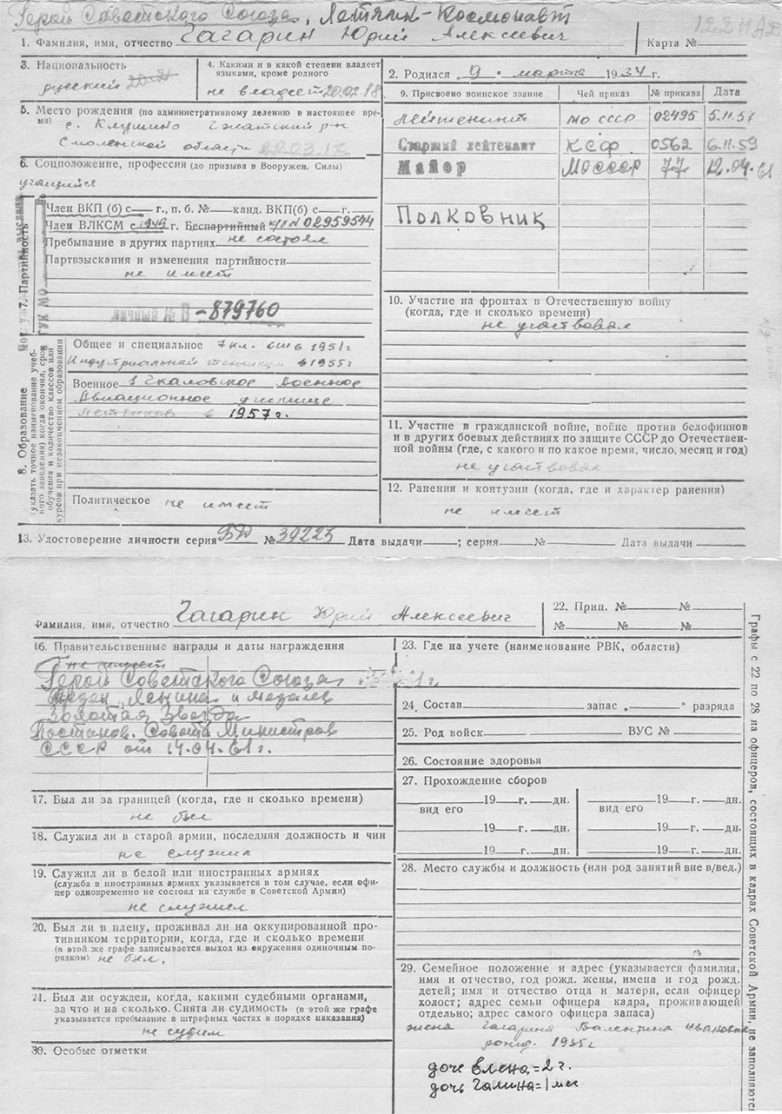 Герой Советского Союза, Летчик-Космонавт
1. Фамилия, имя, отчество Гагарин Юрий Алексеевич
Карта №
3. Национальность
русский
4. Какими и в какой степени владеет
языками, кроме родного
не владеет 20.02.18
2. Родился „9“ марта 1934 г.
5. Место рождения (по административному делению в настоящее вре-
мя) с. Клушино Гжатский р-н
Смоленской области
6. Соцположение, профессия (до призыва в Вооружен. Силы)
учащийся
9. Присвоено воинское звание | Чей приказ | № приказа | Дата
Лейтенант МО СССР 02495 5.11.57
Старший лейтенант КСФ 0562 6.11.59
Майор МО СССР 77 12.04.61
Полковник
7. Партийность
Член ВКП (б) с — г., п. б. № — канд. ВКП(б) с — г.
Член ВЛКСМ с 1949 г. Беспартийный № 02959544
Пребывание в других партиях не состоял
Партвзыскания и изменения партийности
не имеет
ГУК МО
личный № В-879760
10. Участие на фронтах в Отечественную войну
(когда, где и сколько времени)
не участвовал
8. Образование
(указать точное наименование учеб-
ного заведения) когда окончил, срок
обучения и количество классов или
курсов при незаконченном образовании
Общее и специальное 7 кл. в 1951 г
Индустриальный техникум в 1955 г
Военное 1 Чкаловское Военное
Авиационное училище
летчиков в 1957 г.
Политическое не имеет
11. Участие в гражданской войне, войне против белофиннов
и в других боевых действиях по защите СССР до Отечествен-
ной войны (где, с какого и по какое время, число, месяц и год)
не участвовал
12. Ранения и контузии (когда, где и характер ранения)
не имеет
13. Удостоверение личности серия № 39223 Дата выдачи —; серия — № — Дата выдачи —
Фамилия, имя, отчество Гагарин Юрий Алексеевич
22. Прип. № — № —
№ — № — № —
16. Правительственные награды и даты награждения
не имеет
Герой Советского Союза
Орден Ленина и медаль
Золотая Звезда
Постанов. Совета Министров
СССР от 14.04.61 г.
17. Был ли за границей (когда, где и сколько времени)
не был
18. Служил ли в старой армии, последняя должность и чин
не служил
19. Служил ли в белой или иностранных армиях
(служба в иностранных армиях указывается в том случае, если офи-
цер одновременно не состоял на службе в Советской Армии)
не служил
20. Был ли в плену, проживал ли на оккупированной про-
тивником территории, когда, где и сколько времени
(в этой же графе записывается выход из окружения одиночным по-
рядком) не был.
21. Был ли осужден, когда, какими судебными органами,
за что и на сколько. Снята ли судимость (в этой же графе
указывается пребывание в штрафных частях в порядке наказания)
не судим
30. Особые отметки
23. Где на учете (наименование РВК, области)
24. Состав — запас „ — “ разряда
25. Род войск — ВУС № —
26. Состояние здоровья
27. Прохождение сборов
— 19 — г. — дн. — 19 — г. — дн.
вид его вид его
— 19 — г. — дн. — 19 — г. — дн.
— 19 — г. — дн. — 19 — г. — дн.
28. Место службы и должность (или род занятий вне в/вед.)
29. Семейное положение и адрес (указывается фамилия,
имя и отчество, год рожд. жены, имена и год рожд.
детей; имя и отчество отца и матери, если офицер
холост; адрес семьи офицера кадра, проживающей
отдельно; адрес самого офицера запаса)
жена Гагарина Валентина Ивановна
рожд. 1935 г
дочь Елена = 2 г.
дочь Галина = 1 мес
Графы с 22 по 28 на офицеров, состоящих в кадрах Советской Армии, не заполняются